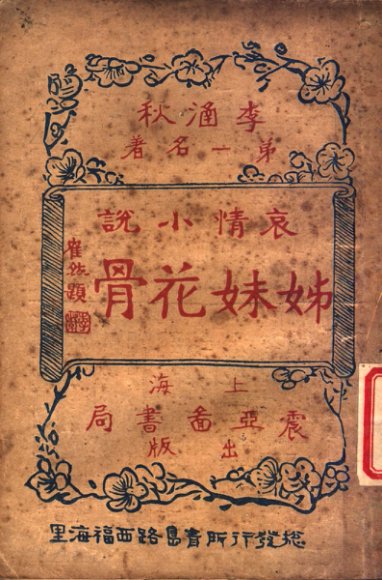 李涵秋
第一名著
哀情小說
姊妹花骨
題
上海
震亞啚書局
出版
總發行所青島路西福海里